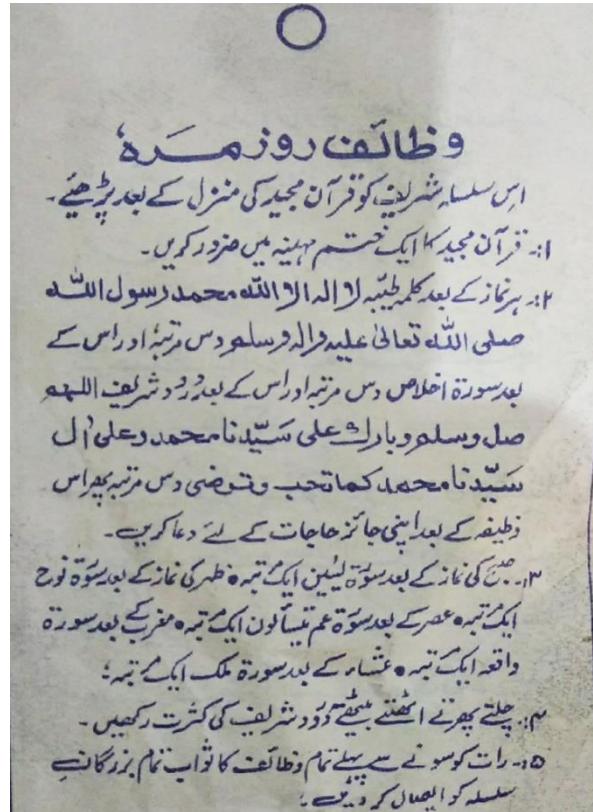 وظائف روز مرہ
اس سلسلہ شریف کو قرآن مجید کی منزل کے بعد پڑھیئے۔
۱:۔ قرآن مجید کا ایک ختم مہینہ میں ضرور کریں۔
۲:۔ ہر نماز کے بعد کلمہ طیّبہ لا الہ الا اللہ محمد رسول اللہ
صلی اللہ تعالیٰ علیہ والہ وسلم دس مرتبہ اور اس کے
بعد سورۃ اخلاص دس مرتبہ اور اس کے بعد درود شریف اللہم
صل وسلم وبارک علی سیّدنا محمد وعلی اٰل
سیّدنا محمد کما تحب وترضی دس مرتبہ پھر اس
وظیفہ کے بعد اپنی جائز حاجات کے لئے دعا کریں۔
۳:۔ صبح کی نماز کے بعد سورۃ یٰسین ایک مرتبہ ۰ ظہر کی نماز کے بعد سورۃ نوح
ایک مرتبہ ۰ عصر کے بعد سورۃ عم یتسألون ایک مرتبہ ۰ مغرب کے بعد سورۃ
واقعہ ایک مرتبہ ۰ عشاء کے بعد سورۃ ملک ایک مرتبہ؛
۴:۔ چلتے پھرتے اٹھتے بیٹھتے درود شریف کی کثرت رکھیں۔
۵:۔ رات کو سونے سے پہلے تمام وظائف کا ثواب تمام بزرگانِ
سلسلہ کو ایصال کر دیں؛